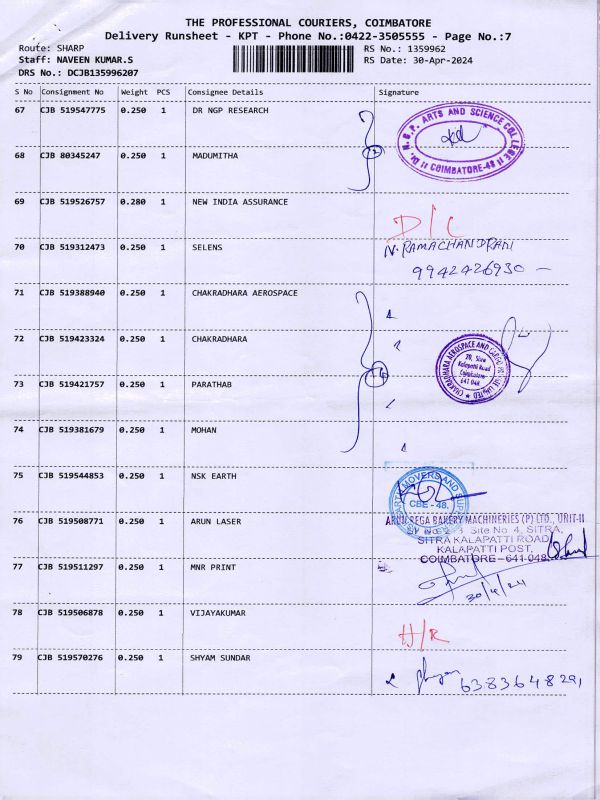 THE PROFESSIONAL COURIERS, COIMBATORE
Delivery Runsheet - KPT - Phone No.:0422-3505555 - Page No.:7
Route: SHARP RS No.: 1359962
Staff: NAVEEN KUMAR.S RS Date: 30-Apr-2024
DRS No.: DCJB135996207
S No Consignment No Weight PCS Consignee Details Signature
67 CJB 519547775 0.250 1 DR NGP RESEARCH
Dr. N.G.P. ARTS AND SCIENCE COLLEGE
COIMBATORE-48
68 CJB 80345247 0.250 1 MADUMITHA
69 CJB 519526757 0.280 1 NEW INDIA ASSURANCE
D/L
70 CJB 519312473 0.250 1 SELENS N. RAMACHANDRAN
9942426930
71 CJB 519388940 0.250 1 CHAKRADHARA AEROSPACE
72 CJB 519423324 0.250 1 CHAKRADHARA
CHAKRADHARA AEROSPACE AND CARGO PRIVATE LIMITED
Kalapatti Road
Coimbatore
641 048
73 CJB 519421757 0.250 1 PARATHAB
74 CJB 519381679 0.250 1 MOHAN
75 CJB 519544853 0.250 1 NSK EARTH
MOVERS AND
CBE - 48.
76 CJB 519508771 0.250 1 ARUN LASER
ARUN REGA BAKERY MACHINERIES (P) LTD., UNIT-II
Site No 4, SITRA,
SITRA KALAPATTI ROAD
KALAPATTI POST,
COIMBATORE-641 048.
77 CJB 519511297 0.250 1 MNR PRINT
30/4/24
78 CJB 519506878 0.250 1 VIJAYAKUMAR
H/R
79 CJB 519570276 0.250 1 SHYAM SUNDAR
6383648291